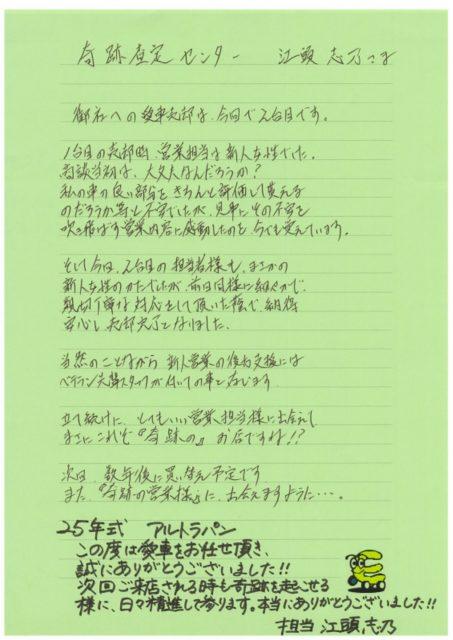 奇跡査定センター 江頭志乃さま
御社への愛車売却は、今回で2台目です。
1台目の売却時、営業担当は新人女性でした。
商談当初は、大丈夫なんだろうか?
私の車の良い部分をきちんと評価して貰える
のだろうか等と不安でしたが、見事にその不安を
吹き飛ばす営業内容に感動したのを今でも覚えています。
そして今回、2台目の担当者様も、まさかの
新人女性のかたでしたが、前回同様に細やかで、
親切丁寧な対応をして頂いた陰で、納得
安心し売却完了となりました。
当然のことながら 新人営業の後方支援には
ベテラン先輩スタッフが付いての事と存じます
立て続けに、とてもいい営業担当様に出会えて
まさにこれぞ『奇跡の』お店ですね!?
次回、数年後に買い替え予定です
また『奇跡の営業様』に、出会えますように・・・。
25年式 アルトラパン
この度は愛車をお任せ頂き、
誠にありがとうございました!!
次回ご来店される時も奇跡を起こせる
様に、日々精進して参ります。本当にありがとうございました!!
担当 江頭志乃